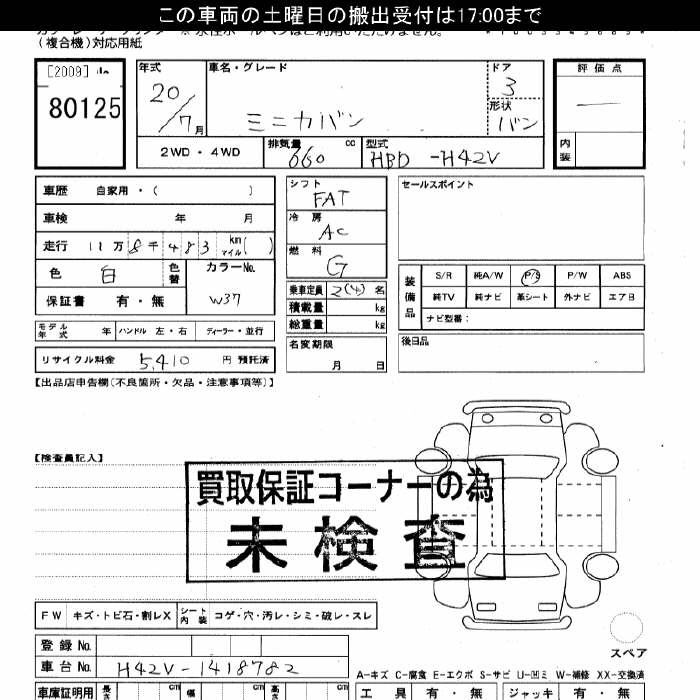 この車両の土曜日の搬出受付は17:00まで
(複合機)対応用紙
[2009]
80125
年式 20/7月
車名・グレード ミニカバン
ドア 3
形状 バン
評価点 —
内装
2WD・4WD
排気量 660 cc
型式 HBD-H42V
車歴 自家用・( )
車検 年 月
走行 11万8千483 km マイル( )
色 白 色替
カラーNo. W37
保証書 有・無
モデル年式 年 ハンドル 左・右 ディーラー・並行
リサイクル料金 5,410 円 預託済
シフト FAT
冷房 AC
燃料 G
乗車定員 2(4) 名
積載量 kg
総重量 kg
名変期限 月 日
セールスポイント
装備品
S/R 純A/W P/S P/W ABS
純TV 純ナビ 革シート 外ナビ エアB
ナビ型番:
後日品
【出品店申告欄(不良箇所・欠品・注意事項等)】
【検査員記入】
買取保証コーナーの為
未検査
FW キズ・トビ石・割レX シート内装 コゲ・穴・汚レ・シミ・破レ・スレ
スペア
登録No.
車台No. H42V-1418782
A-キズ C-腐食 E-エクボ S-サビ U-凹ミ W-補修 XX-交換済
車庫証明用 長さ cm 幅 cm 高さ cm
工具 有・無 ジャッキ 有・無